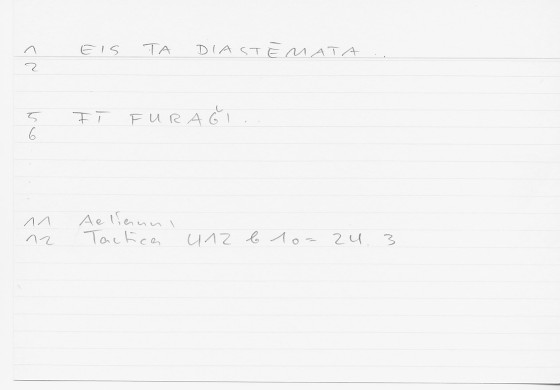 1 EIS TA DIASTĒMATA..
2
5 FĪ FURAǦI..
6
11 Aelianus
12 Tactica 412 b 10 = 24.3